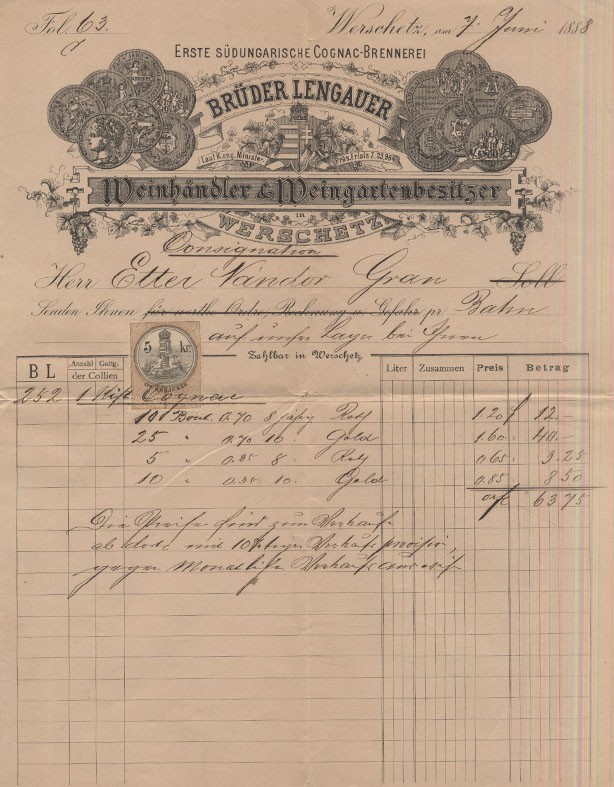 Fol. 63.
Werschetz, am 7. Juni 1888
ERSTE SÜDUNGARISCHE COGNAC-BRENNEREI
BRÜDER LENGAUER
Laut K. ung. Minister. Präs. Erlafs Z. 33,964
Weinhändler & Weingartenbesitzer
in
WERSCHETZ
Consignation
Herr Etter Nándor Gran Soll
Senden Ihnen für werthe Ordre, Rechnung u. Gefahr pr. Bahn
auf unser Lager bei Ihnen
5 kr.
Zahlbar in Werschetz.
BL Anzahl Gattg. der Collien Liter Zusammen Preis Betrag
252 1 Kiste Cognac
10 Bout. 0.70 8 jährig Roth 1.20 12.—
25 " 0.70 10 " Gold 1.60 40.—
5 " 0.35 8 " Roth 0.65 3.25
10 " 0.35 10 " Gold 0.85 8.50
63.75
Die Preise sind zum Verkaufe
ab dort mit 10% Verkaufs provision,
gegen Monatliche Verkaufs ausweise